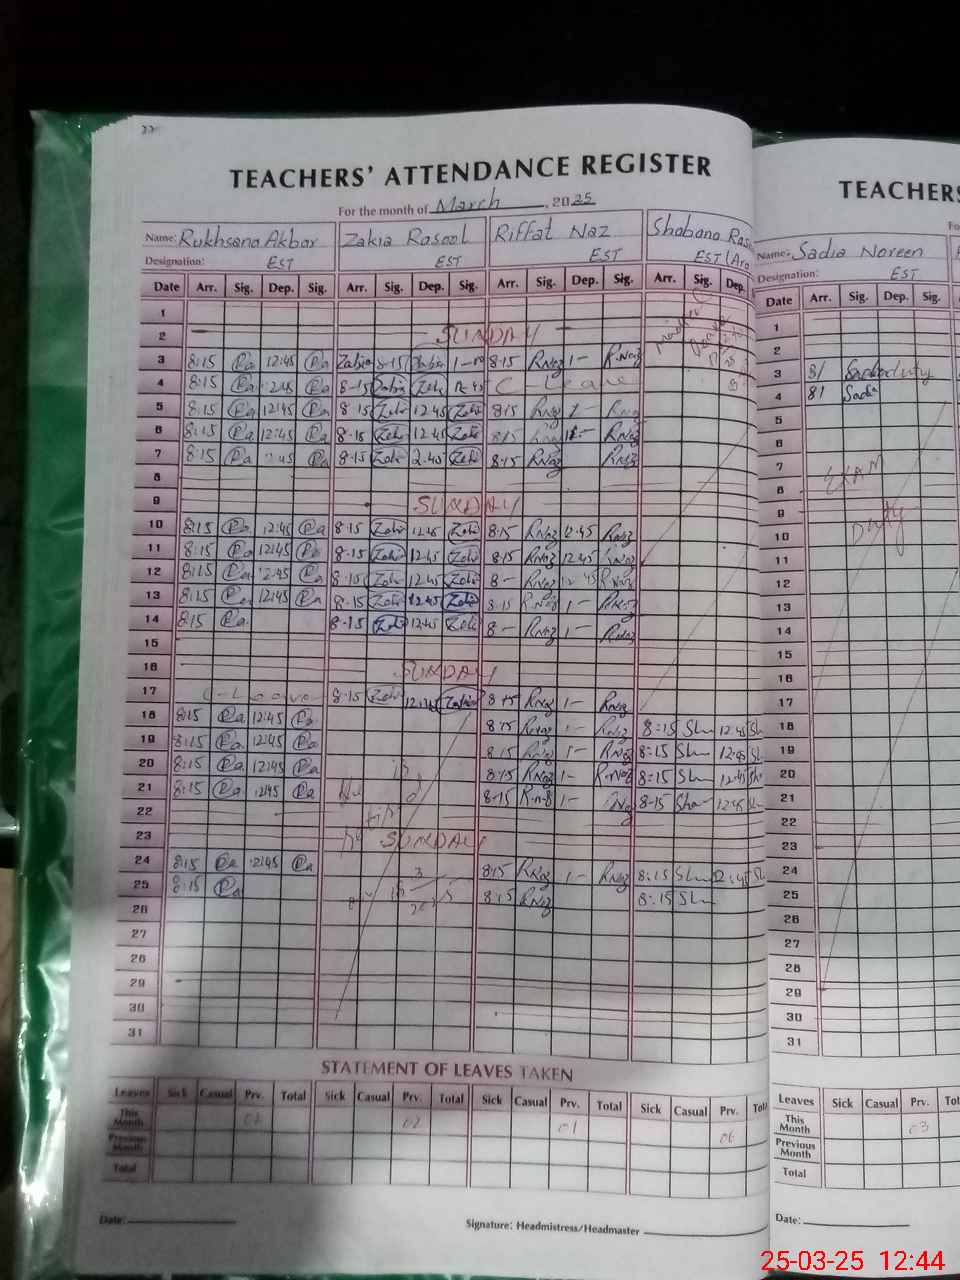 TEACHERS' ATTENDANCE REGISTER
For the month of March, 2025
Name: Rukhsana Akbar Zakia Rasool Riffat Naz Shabana Ras
Designation: EST EST EST EST (Ara
Date Arr. Sig. Dep. Sig. Arr. Sig. Dep. Sig. Arr. Sig. Dep. Sig. Arr. Sig. Dep.
1
2 SUNDAY
3 8:15 Ra 12:45 Ra Zakia 8-15 Zakia 8-15 RNaz 1- RNaz
4 8:15 Ra 2:45 Ra 8-15 Zakia C-Leave
5 8:15 Ra 12:45 Ra 8-15 Zaki 12.45 Zaki 8:15 RNaz 1- RNaz
6 8:15 Ra 12:45 Ra 8-15 Zaki 12.45 Zaki 8:15 RNaz RNaz
7 8:15 Ra 2:45 Ra 8-15 Zaki 2.45 Zaki 8:15 RNaz RNaz
8
9 SUNDAY
10 8:15 Ra 12:45 Ra 8-15 Zaki 12.45 Zaki 8:15 RNaz 12.45 RNaz
11 8:15 Ra 12:45 Ra 8-15 Zaki 12.45 Zaki 8:15 RNaz 12.45 RNaz
12 8:15 Ra 2:45 Ra 8-15 Zaki 12.45 Zaki 8- RNaz 12-45 RNaz
13 8:15 Ra 12:45 Ra 8-15 Zaki 12.45 Zaki 8:15 RNaz 1- RNaz
14 8:15 Ra 8-15 Zaki 12.45 Zaki 8- RNaz 1- RNaz
15
16 SUNDAY
17 C-Leave 8-15 Zaki Zakia 8:15 RNaz 1- RNaz
18 8:15 Ra 12:45 Ra 8:15 RNaz 1- RNaz 8:15 Sh 12:45 Sh
19 8:15 Ra 12:45 Ra 8:15 RNaz 1- RNaz 8:15 Sh 12:45 Sh
20 8:15 Ra 12:45 Ra 8:15 RNaz 1- RNaz 8:15 Sh 12:45 Sh
21 8:15 Ra 12:45 Ra 8-15 RNaz 1- Naz 8-15 Sha 12:45 Sh
22
23 SUNDAY
24 8:15 Ra 12:45 Ra 8:15 RNaz 1- RNaz 8:15 Sh 12:45 Sh
25 8:15 Ra 8:15 RNaz 8:15 Sh
26
27
28
29
30
31
STATEMENT OF LEAVES TAKEN
Leaves Sick Casual Prv. Total Sick Casual Prv. Total Sick Casual Prv. Total Sick Casual Prv. Tot
This Month 02 02 01 06
Previous Month
Total
Date: Signature: Headmistress/Headmaster
TEACHERS
Fo
Name: Sadia Noreen
Designation: EST
Date Arr. Sig. Dep. Sig.
1
2
3 8/ Sadia duty
4 8/ Sadia
5
6
7 EXAM
8
9 Duty
10
11
12
13
14
15
16
17
18
19
20
21
22
23
24
25
26
27
28
29
30
31
Leaves Sick Casual Prv. Tot
This Month 03
Previous Month
Total
Date:
25-03-25 12:44